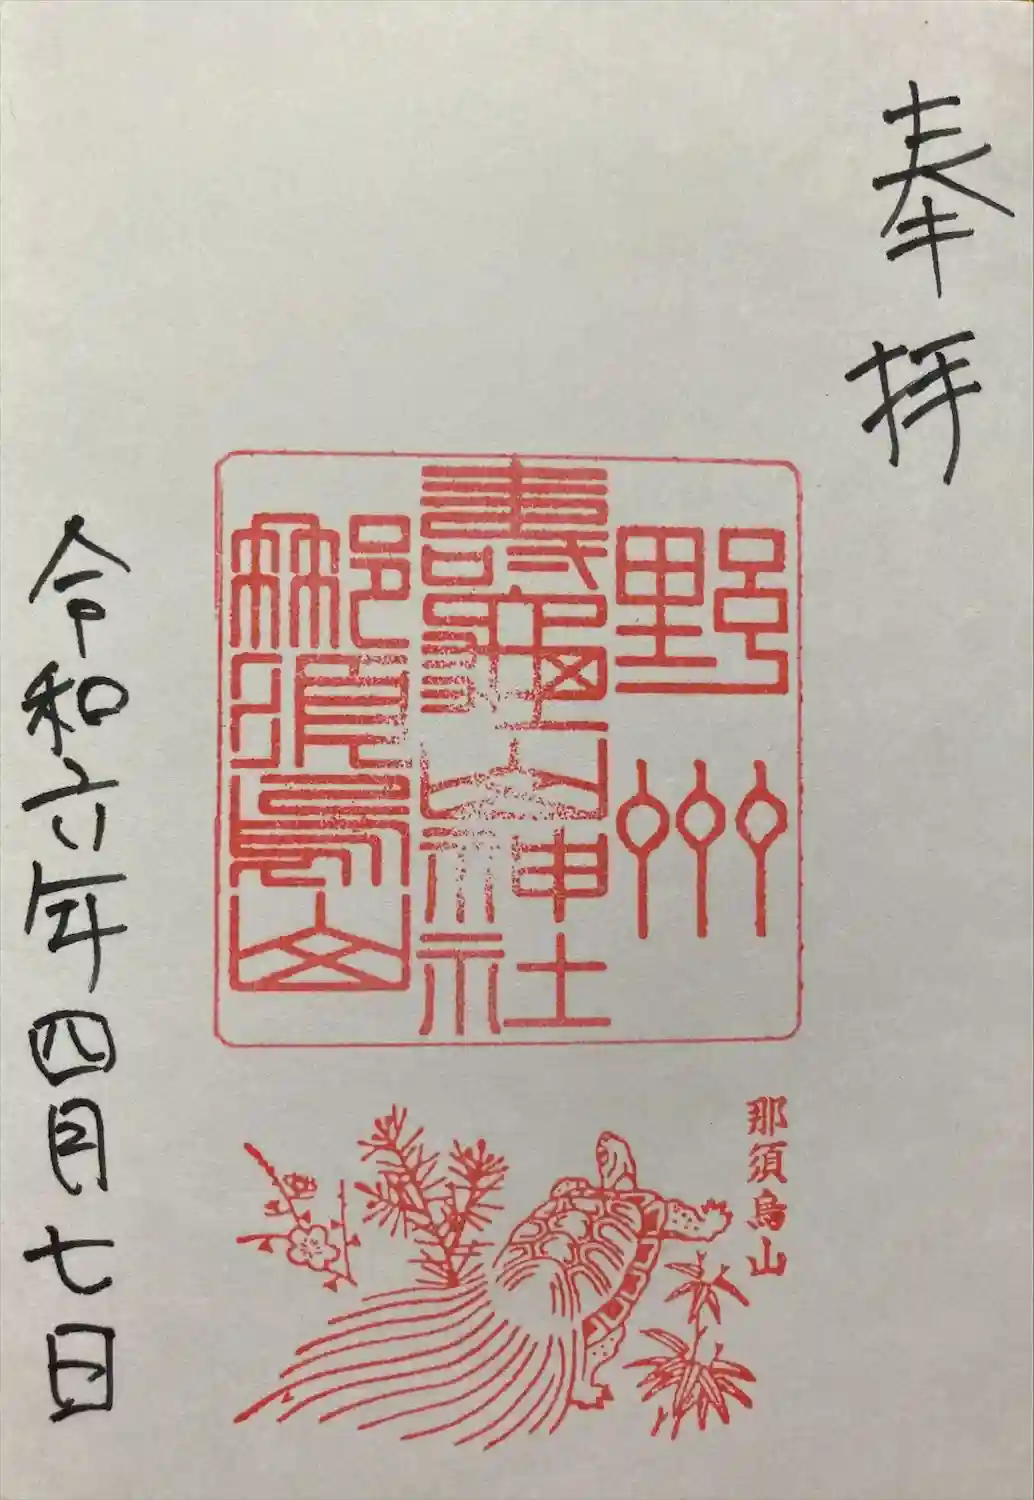 奉拝
野州
壽亀山神社
那須烏山
那須烏山
令和六年四月七日